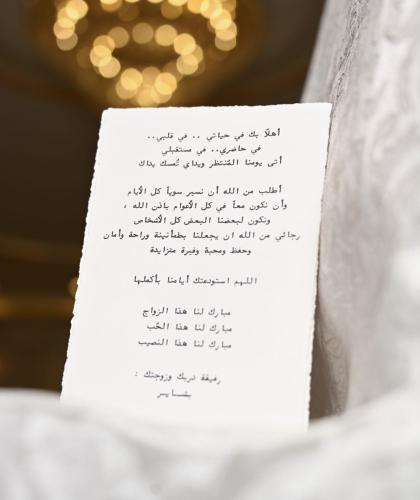 أهلاً بك في حياتي .. في قلبي..
في حاضري.. في مستقبلي
أتى يومنا المُنتظر ويداي تُمسك يداك
أطلب من الله أن نسير سوياً كل الأيام
وأن نكون معاً في كل الأعوام باذن الله ،
ونكون لبعضنا البعض كل الأشخاص
رجائي من الله ان يجعلنا بطمأنينة وراحة وأمان
وحفظ ومحبة وغيرة متزايدة
اللهم استودعتك أيامنا بأكملها
مبارك لنا هذا الزواج
مبارك لنا هذا الحُب
مبارك لنا هذا النصيب
رفيقة دربك وزوجتك :
بشـــايـــر